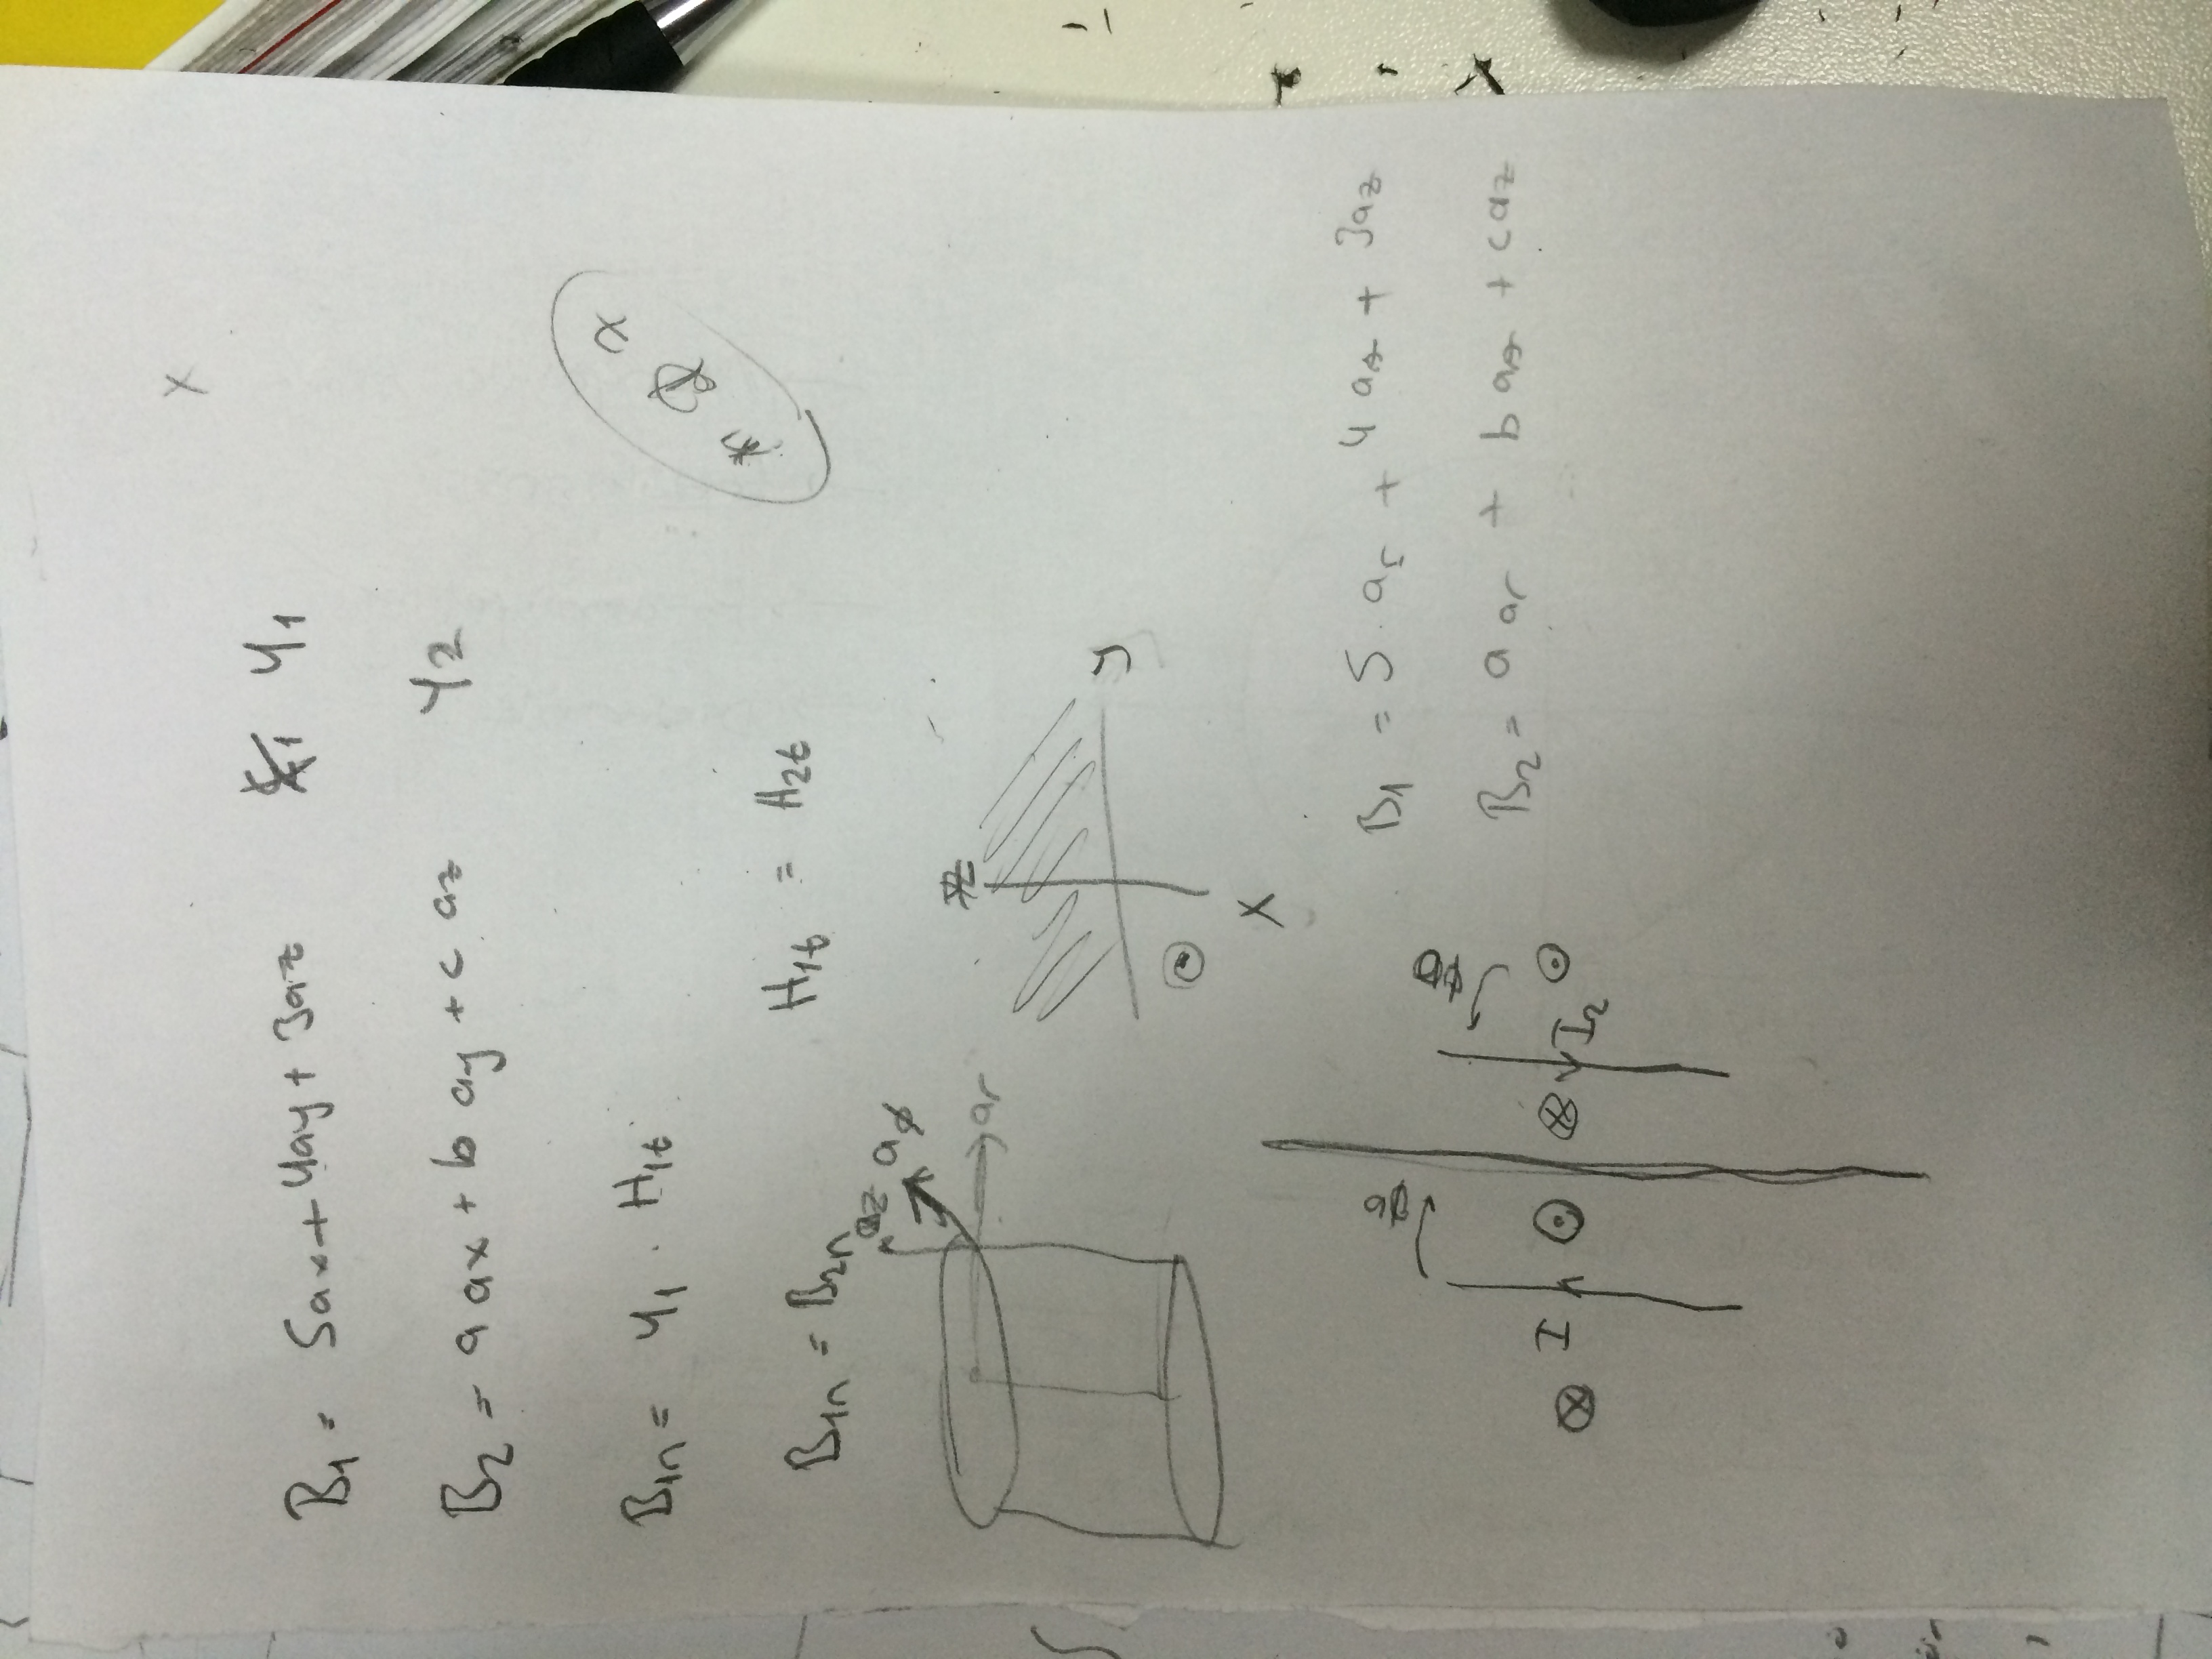 x
B1 = 5ax + 4ay + 3az y1
B2 = a ax + b ay + c az y2
x
B1n = y1 . H1t
B1n = B2n H1t = H2t
az aφ
ar
z
y
x
B1 = 5 . ar + 4 aø + 3az
B2 = a ar + b aø + c az
I
I2